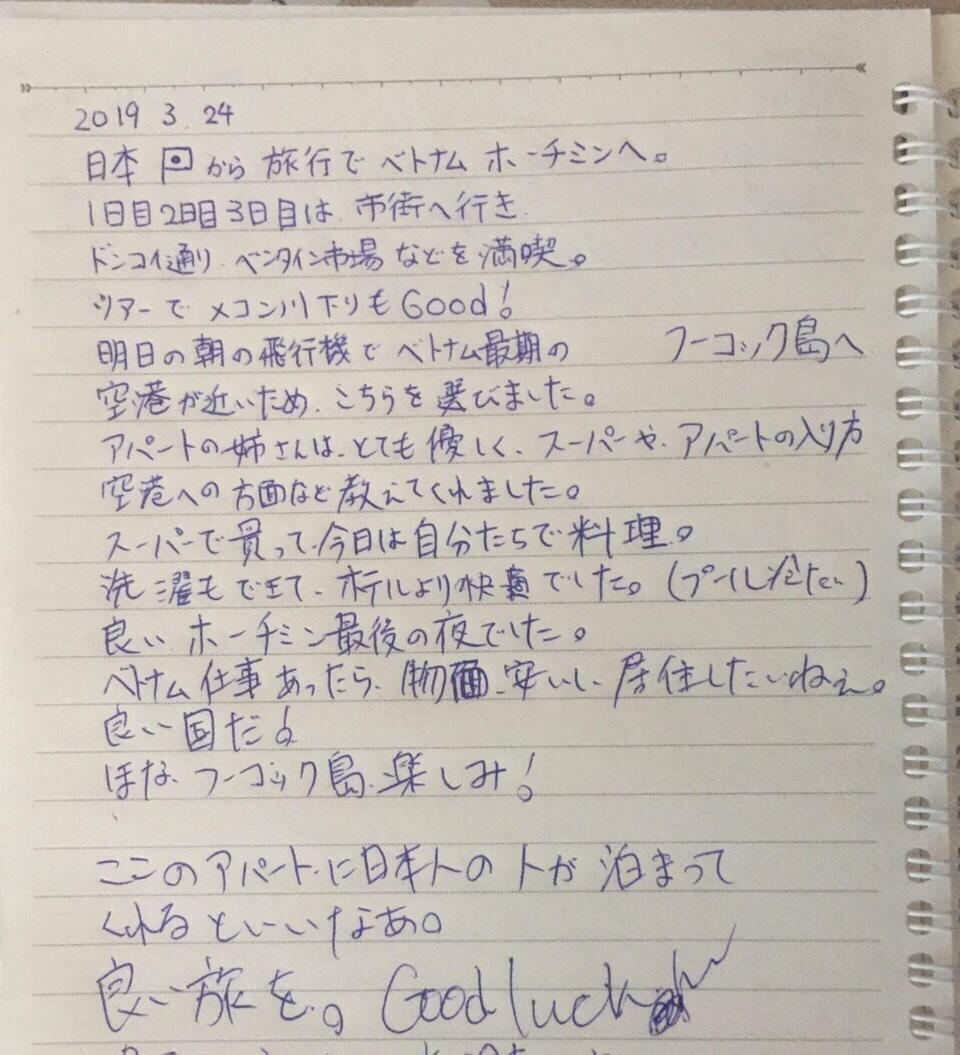 2019 3. 24
日本 から 旅行で ベトナム ホーチミンへ。
1日目2日目3日目は、市街へ行き
ドンコイ通り、ベンタイン市場 などを 満喫。
ツアーで メコン川下りも Good!
明日の朝の飛行機で ベトナム最期の フーコック島へ
空港が近いため、こちらを 選びました。
アパートの姉さんは、とても 優しく、スーパーや、アパートの入り方
空港への 方面など 教えてくれました。
スーパーで 買って、今日は 自分たちで 料理。
洗濯も できて、ホテルより快適でした。(プール冷たい)
良い ホーチミン最後の夜でした。
ベトナム 仕事 あったら、物価 安いし、居住したいねぇ。
良い 国だ!
ほな、フーコック島、楽しみ!
ここのアパートに日本人の 人が 泊まって
くれると いいなあ。
良い旅を。Good luck